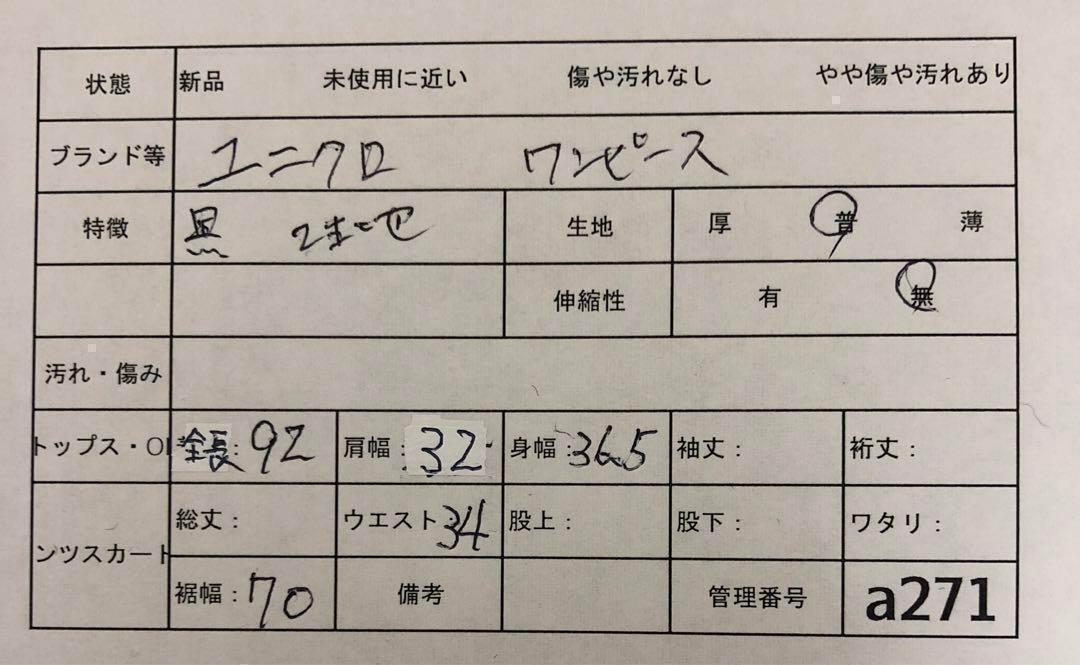 状態 新品 未使用に近い 傷や汚れなし やや傷や汚れあり
ブランド等 ユニクロ ワンピース
特徴 黒 生地 厚 普 薄
伸縮性 有 無
汚れ・傷み
トップス・OP 全長:92 肩幅:32 身幅:36.5 袖丈: 裄丈:
総丈: ウエスト:34 股上: 股下: ワタリ:
ンツスカート
裾幅:70 備考 管理番号 a271